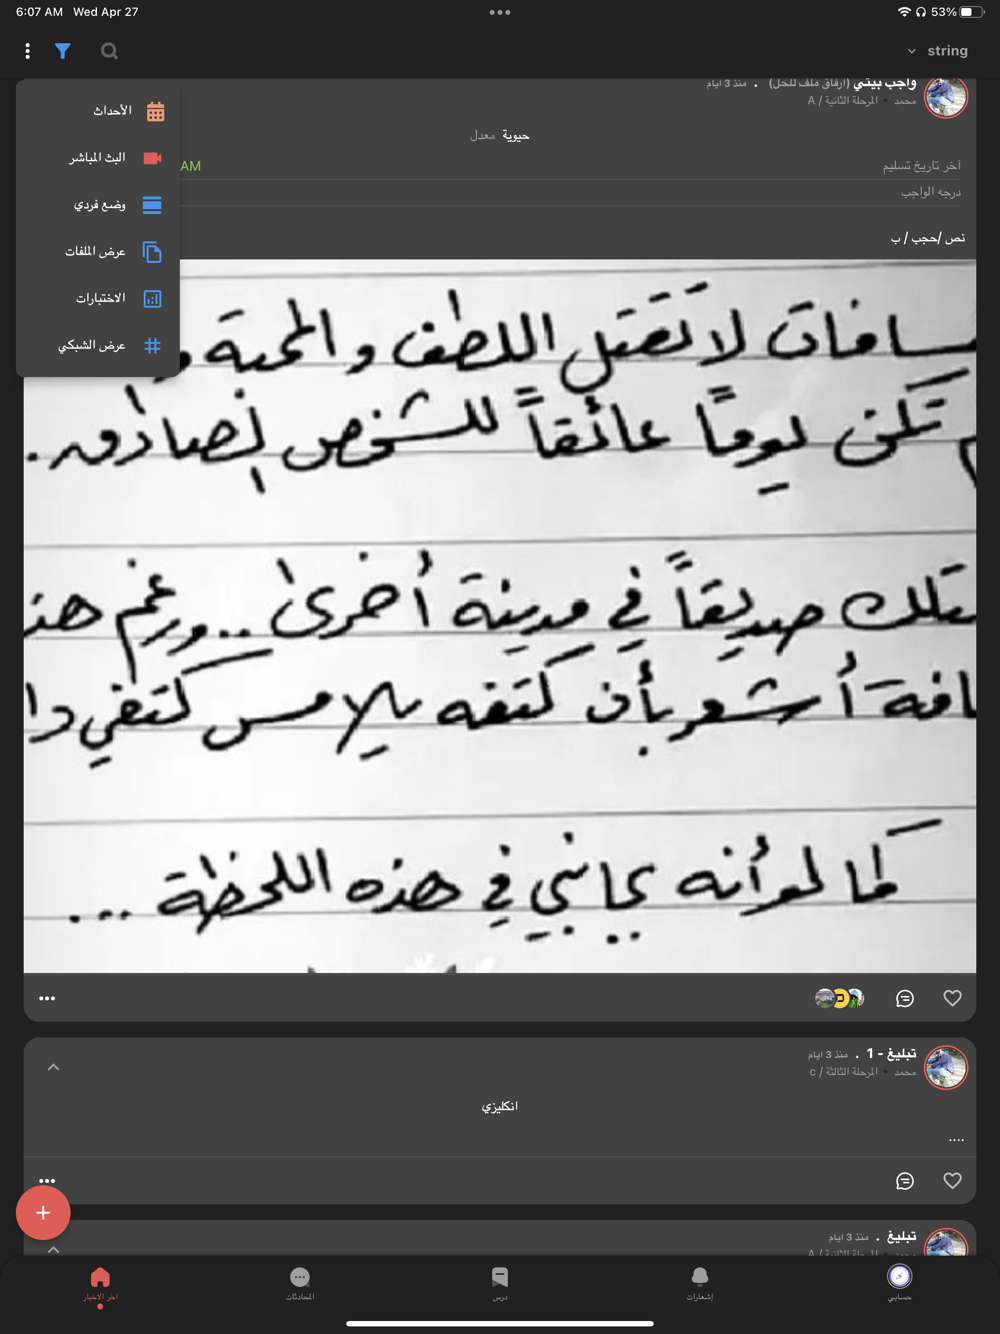 6:07 AM Wed Apr 27
53%
string
واجب بيتي (ارفاق ملف للحل) . منذ 3 ايام
محمد • المرحلة الثانية / A
حيوية معدل
آخر تاريخ تسليم
AM
درجه الواجب
نص /حجب / ب
الأحداث
البث المباشر
وضع فردي
عرض الملفات
الاختبارات
عرض الشبكي
سافات لا تقتل اللطف و المحبة و
تكن يوماً عائقاً للشخص الصادق.
متلك صديقاً في مدينة أخرى .. ورغم هذ
افة أشعر بأن كتفه يلامس كتفي دا
كما لو أنه بجانبي في هذه اللحظة ...
تبليغ - 1 . منذ 3 ايام
محمد • المرحلة الثالثة / c
انكليزي
....
تبليغ . منذ 3 ايام
محمد • المرحلة الثانية / A
حسابي
إشعارات
درس
المحادثات
اخر الاخبار